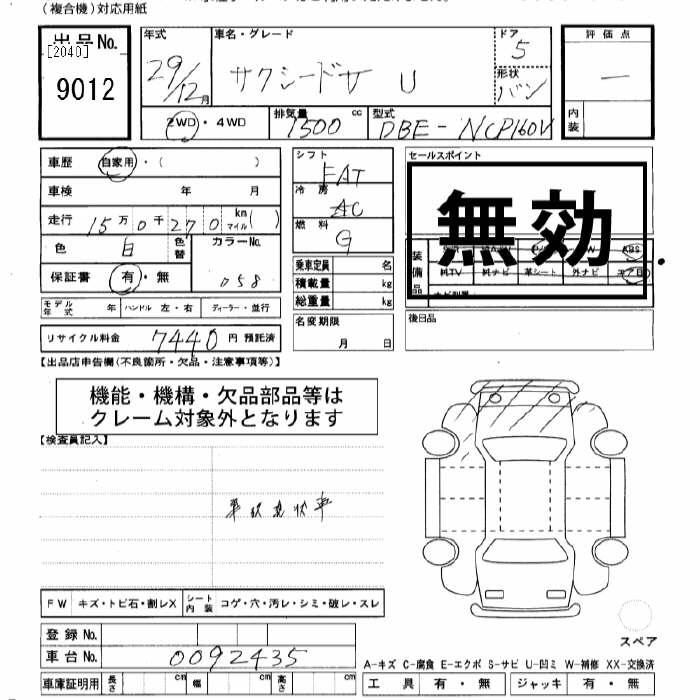 (複合機)対応用紙
出品No.
[2040]
9012
年式
29/12月
車名・グレード
サクシードサ U
ドア
5
形状
バン
評価点
—
2WD・4WD
排気量
1500 cc
型式
DBE-NCP160V
内装
車歴 自家用・( )
車検 年 月
走行 15万0千270 km マイル( )
色 白 色替 カラーNo. 058
保証書 有・無
モデル年式 年 ハンドル 左・右 ディーラー・並行
リサイクル料金 7440円 預託済
シフト
FAT
冷房
AC
燃料
G
乗車定員 名
積載量 kg
総重量 kg
名変期限
月 日
セールスポイント
無効
装備品
ABS
純TV 純ナビ 革シート 外ナビ エアB
後日品
【出品店申告欄(不良箇所・欠品・注意事項等)】
機能・機構・欠品部品等は
クレーム対象外となります
【検査員記入】
FW キズ・トビ石・割レX シート内装 コゲ・穴・汚レ・シミ・破レ・スレ
登録No.
車台No. 0092435
車庫証明用 長さ cm 幅 cm 高さ cm
スペア
A-キズ C-腐食 E-エクボ S-サビ U-凹ミ W-補修 XX-交換済
工具 有・無 ジャッキ 有・無